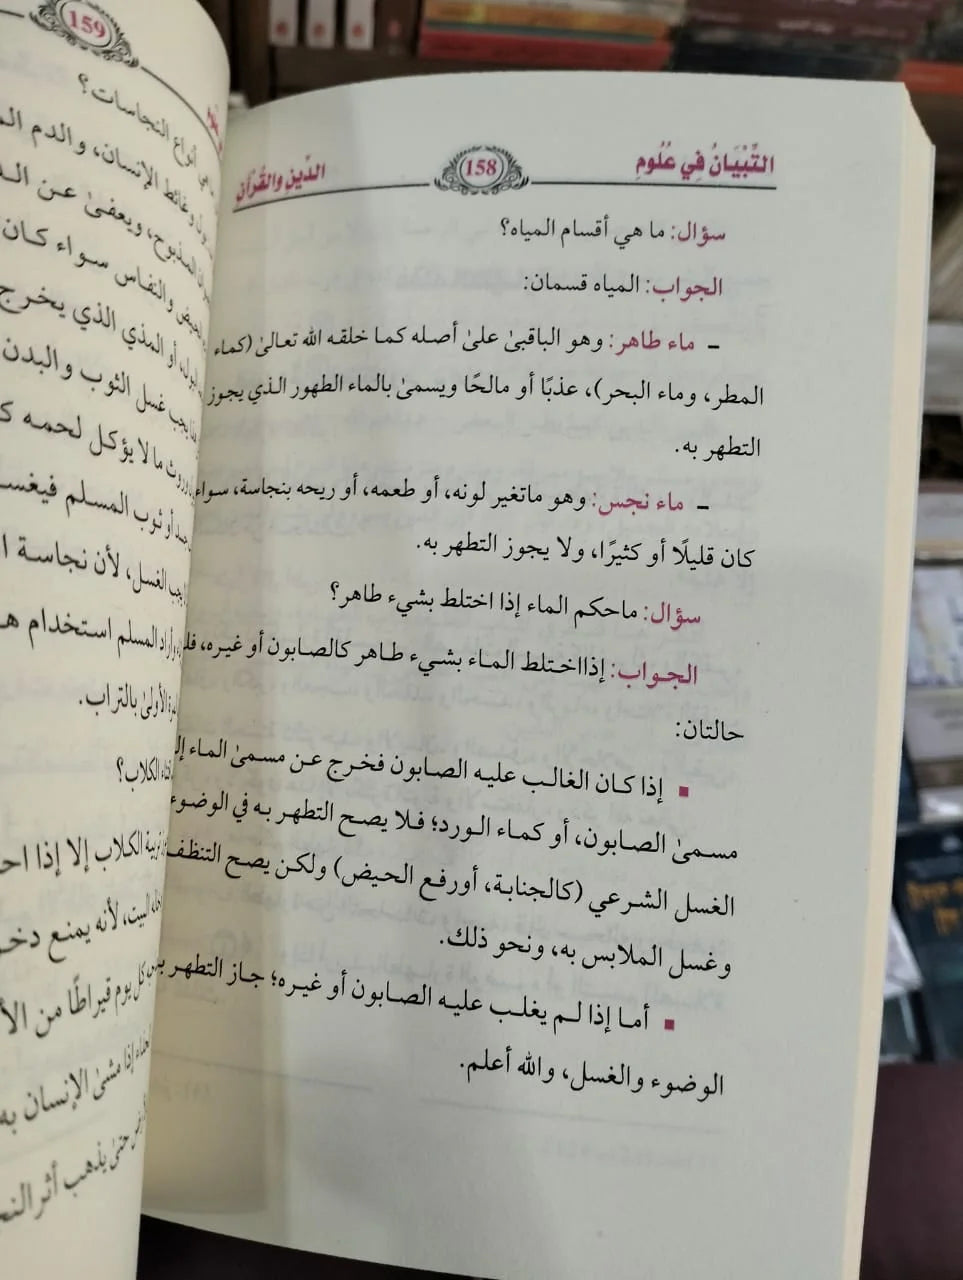 التِّبْيَانُ فِي عُلُومِ
158
الدِّينِ والقُرْآنِ
سؤال: ما هي أقسام المياه؟
الجواب: المياه قسمان:
– ماء طاهر: وهو الباقىٰ علىٰ أصله كما خلقه الله تعالىٰ (كماء
المطر، وماء البحر)، عذبًا أو مالحًا ويسمىٰ بالماء الطهور الذي يجوز
التطهر به.
– ماء نجس: وهو ماتغير لونه، أو طعمه، أو ريحه بنجاسة، سواء
كان قليلًا أو كثيرًا، ولا يجوز التطهر به.
سؤال: ماحكم الماء إذا اختلط بشيء طاهر؟
الجواب: إذااختلط الماء بشيء طاهر كالصابون أو غيره، فله
حالتان:
▪ إذا كان الغالب عليه الصابون فخرج عن مسمىٰ الماء إلى
مسمىٰ الصابون، أو كماء الورد؛ فلا يصح التطهر به في الوضوء
الغسل الشرعي (كالجنابة، أورفع الحيض) ولكن يصح التنظف
وغسل الملابس به، ونحو ذلك.
▪ أما إذا لم يغلب عليه الصابون أو غيره؛ جاز التطهر به
الوضوء والغسل، والله أعلم.
159
أنواع النجاسات؟
وغائط الإنسان، والدم
المذبوح، ويعفىٰ عن
الحيض والنفاس سواء كان
أو المذي الذي يخرج
يجب غسل الثوب والبدن
وروث ما لا يؤكل لحمه
أو ثوب المسلم
الغسل، لأن نجاسة
وأراد المسلم استخدام
الأولىٰ بالتراب.
الكلاب؟
تربية الكلاب إلا إذا
البيت، لأنه يمنع
كل يوم قيراطًا من
إذا مشىٰ الإنسان
حتىٰ يذهب أثر